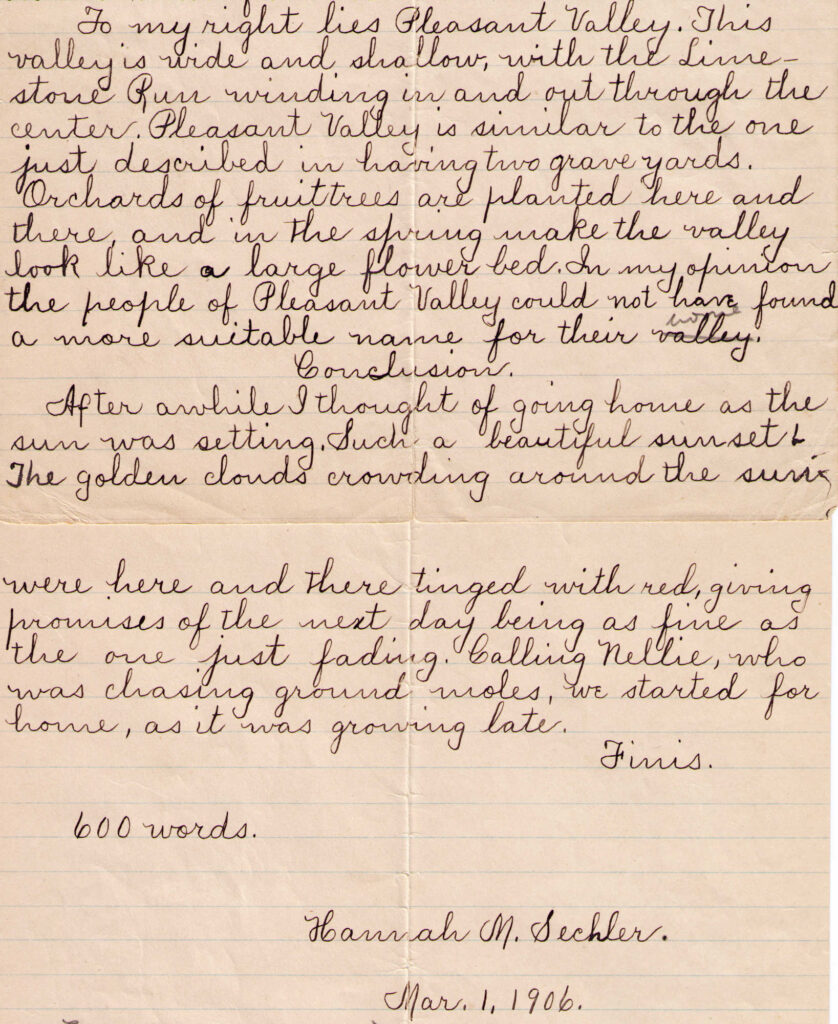 To my right lies Pleasant Valley. This
valley is wide and shallow, with the Lime-
stone Run winding in and out through the
center. Pleasant Valley is similar to the one
just described in having two grave yards.
Orchards of fruit trees are planted here and
there, and in the spring make the valley
look like a large flower bed. In my opinion
the people of Pleasant Valley could not have found
a more suitable name for their valley.
home
Conclusion.
After awhile I thought of going home as the
sun was setting. Such a beautiful sunset!
The golden clouds crowding around the sun
were here and there tinged with red, giving
promises of the next day being as fine as
the one just fading. Calling Nellie, who
was chasing ground moles, we started for
home, as it was growing late.
Finis.
600 words.
Hannah M. Sechler.
Mar. 1, 1906.